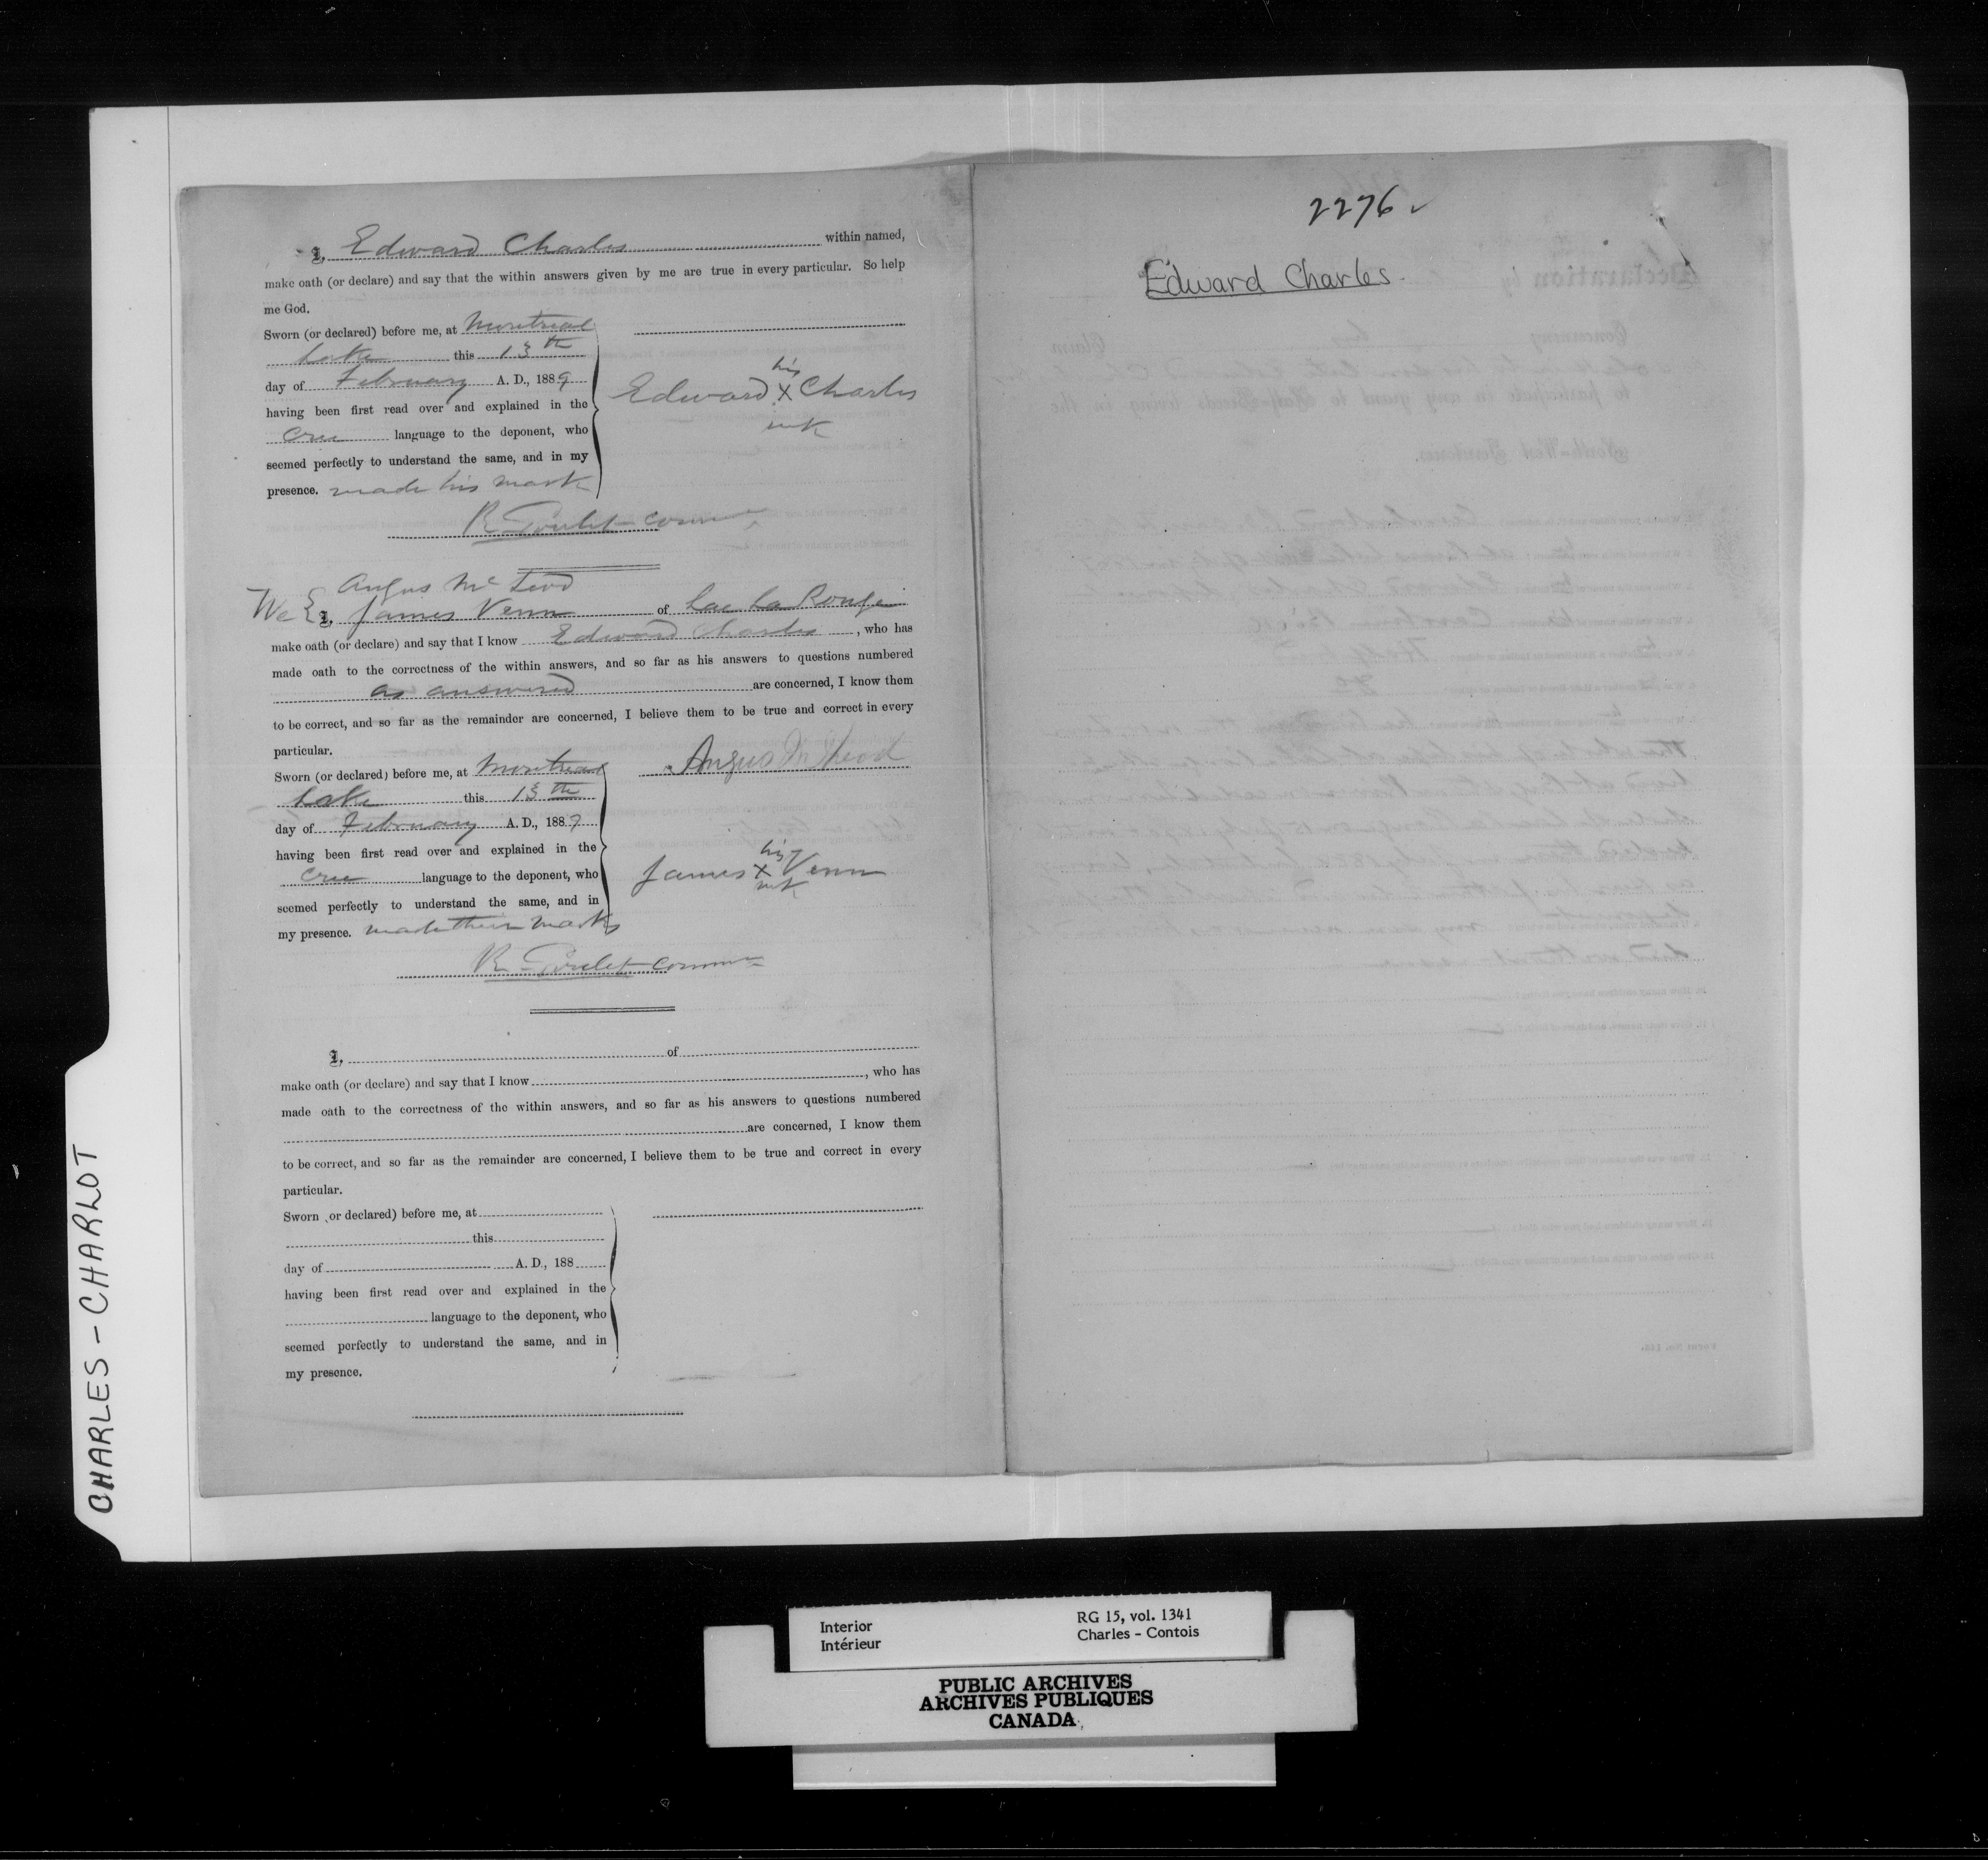 I, Edward Charles within named,
make oath (or declare) and say that the within answers given by me are true in every particular. So help
me God.
Sworn (or declared) before me, at Montreal
Lake this 13th
day of February A. D., 1889
having been first read over and explained in the
Cree language to the deponent, who
seemed perfectly to understand the same, and in my
presence. made his mark
Edward his X Charles
mk
R Goulet Comm
Angus Mc Leod
We & I, James Venn of Lac La Ronge
make oath (or declare) and say that I know Edward Charles, who has
made oath to the correctness of the within answers, and so far as his answers to questions numbered
as answered are concerned, I know them
to be correct, and so far as the remainder are concerned, I believe them to be true and correct in every
particular.
Sworn (or declared) before me, at Montreal
Lake this 13th
day of February A. D., 1889
having been first read over and explained in the
Cree language to the deponent, who
seemed perfectly to understand the same, and in
my presence. made their marks
Angus McLeod
James his X Venn
mk
R Goulet Comm
I, of
make oath (or declare) and say that I know , who has
made oath to the correctness of the within answers, and so far as his answers to questions numbered
are concerned, I know them
to be correct, and so far as the remainder are concerned, I believe them to be true and correct in every
particular.
Sworn (or declared) before me, at
this
day of A. D., 188
having been first read over and explained in the
language to the deponent, who
seemed perfectly to understand the same, and in
my presence.
2276
Edward Charles.
CHARLES - CHARLOT
Interior
Intérieur
RG 15, vol. 1341
Charles - Contois
PUBLIC ARCHIVES
ARCHIVES PUBLIQUES
CANADA